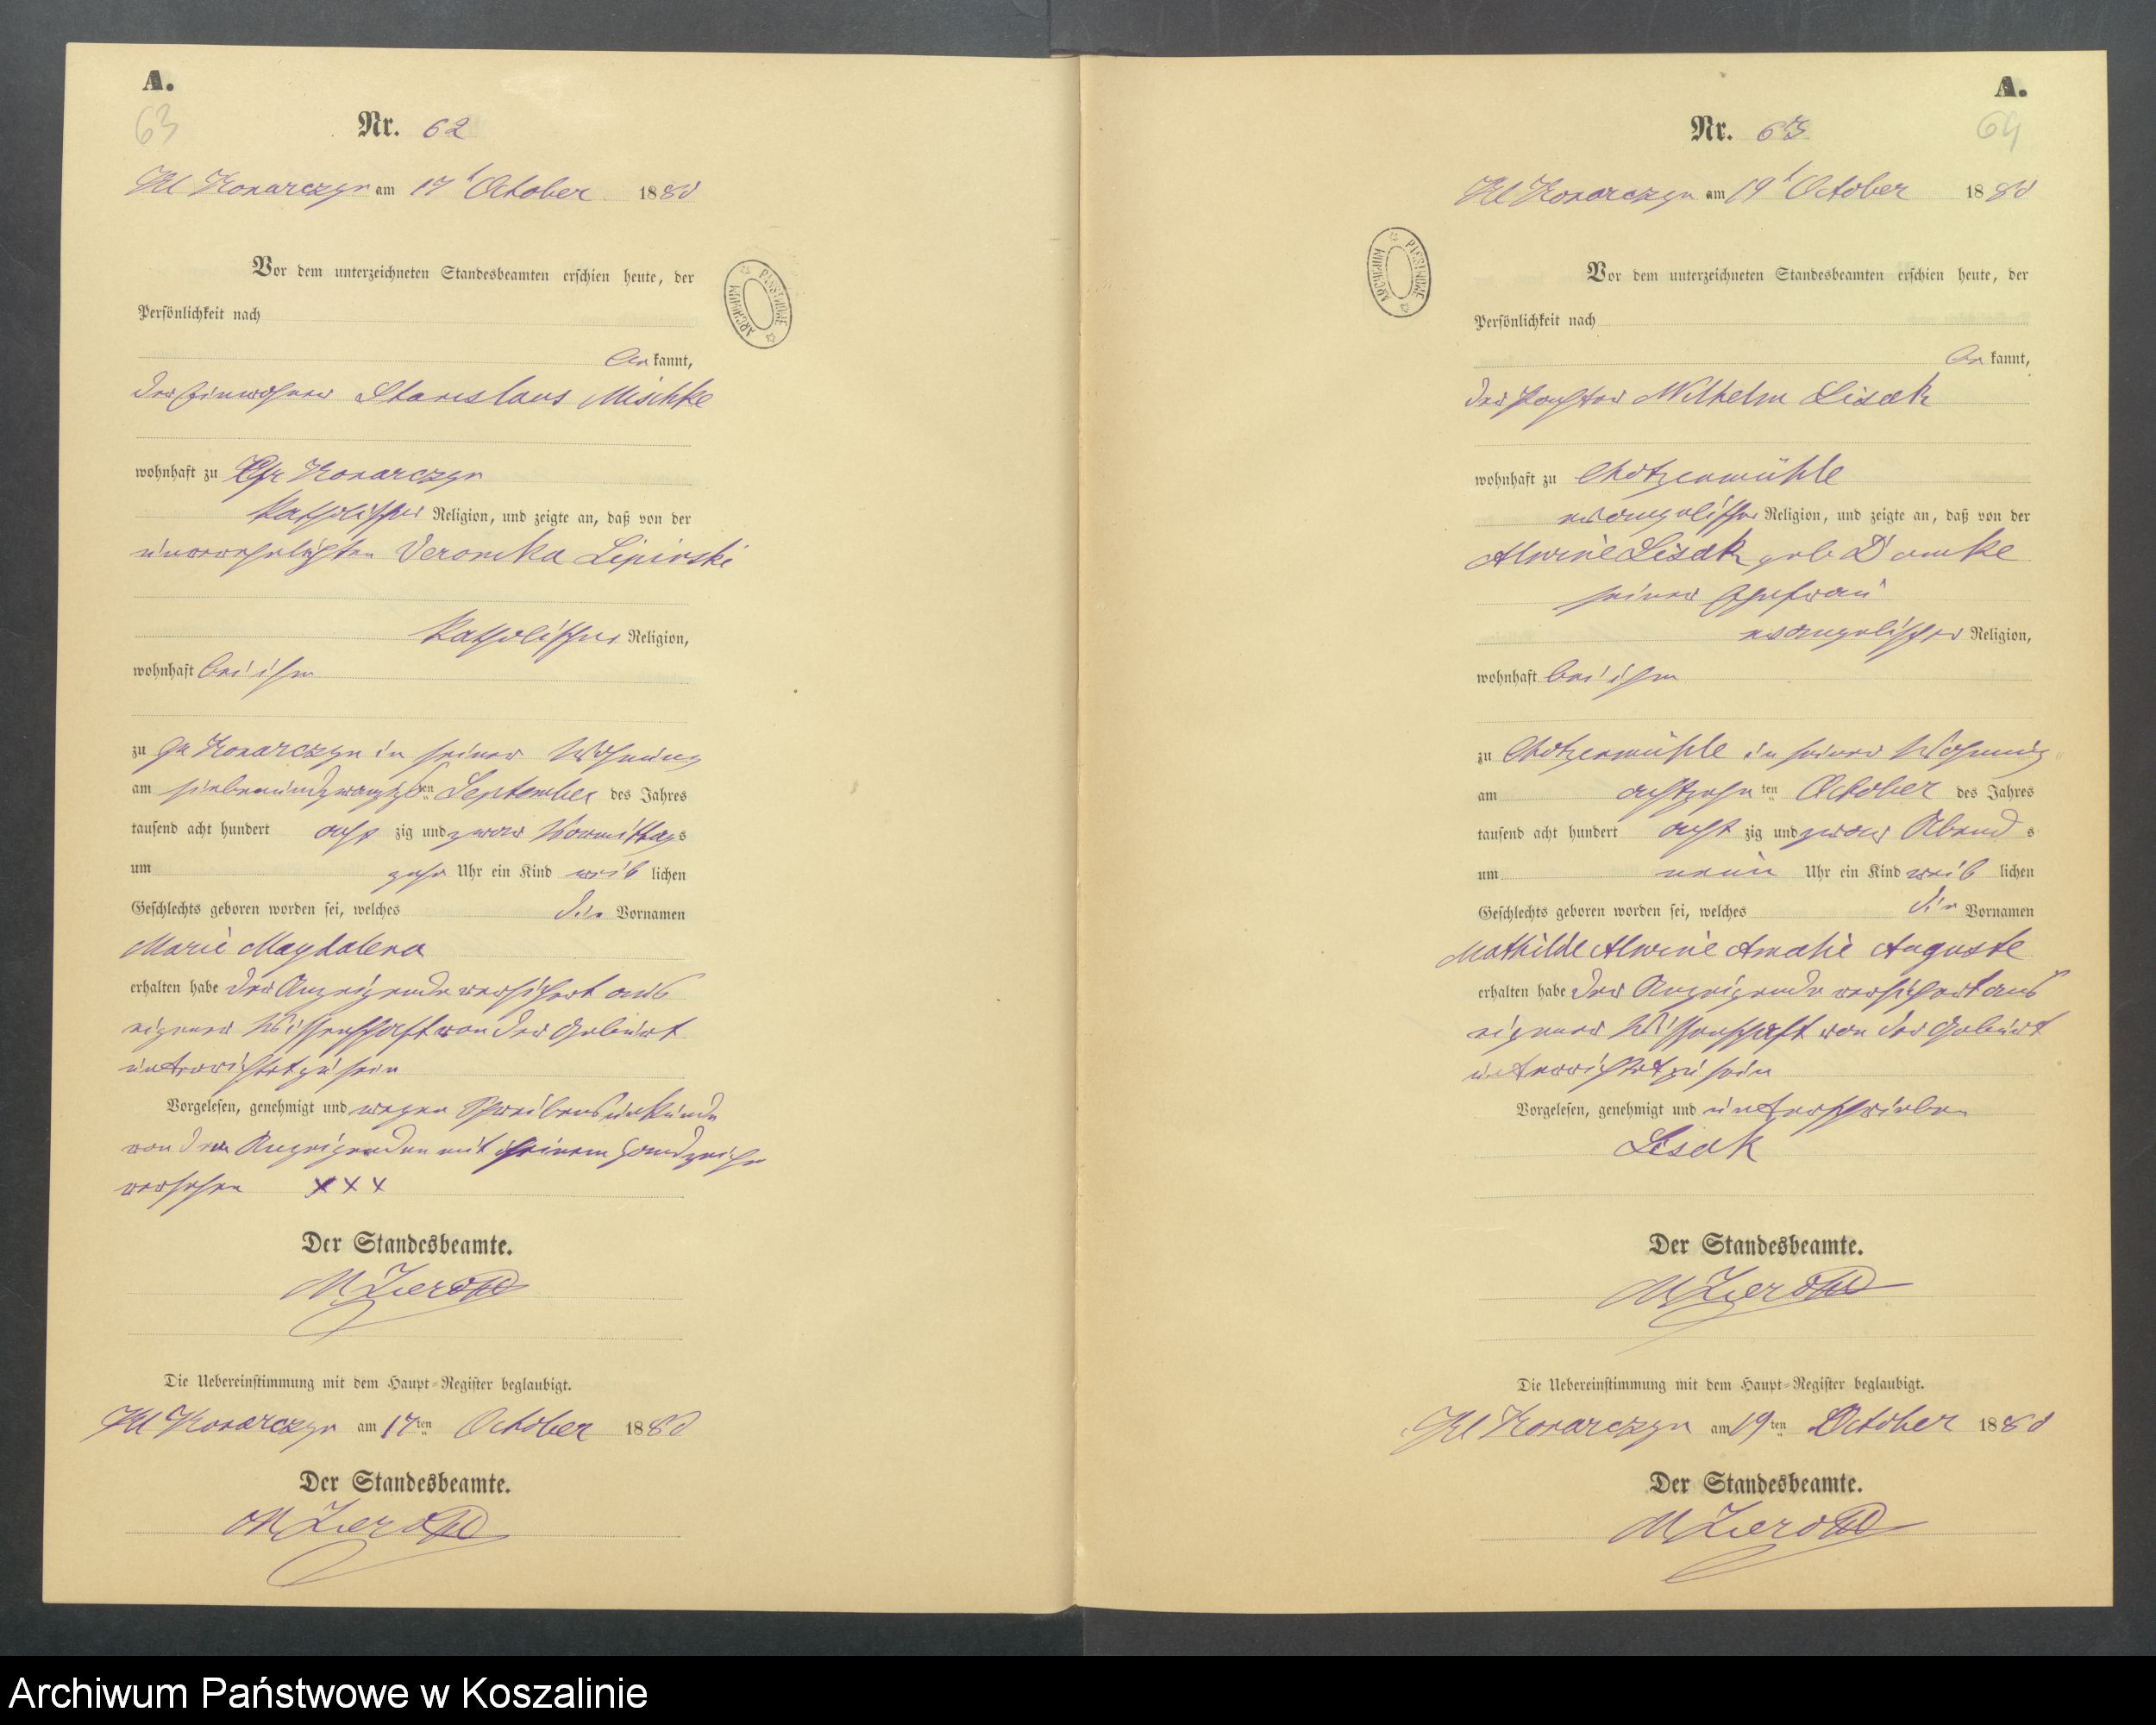 A.
63
Nr. 62
Kl Konarczyn am 17t October 1880
Vor dem unterzeichneten Standesbeamten erschien heute, der
Persönlichkeit nach
be kannt,
der Einwohner Stanislaus Mischke
wohnhaft zu Gr Konarczyn
katholischer Religion, und zeigte an, daß von der
unverehelichten Veronika Lipinski
katholischer Religion,
wohnhaft bei ihm
zu Gr Konarczyn in seiner Wohnung
am siebenundzwanzigsten September des Jahres
tausend acht hundert acht zig und zwar Vormittags
um zehn Uhr ein Kind weib lichen
Geschlechts geboren worden sei, welches die Vornamen
Marie Magdalena
erhalten habe der Anzeigende versichert aus
eigener Wissenschaft von der Geburt
unterrichtet zu sein
Vorgelesen, genehmigt und wegen Schreibensunkunde
von dem Anzeigenden mit seinem Handzeichen
versehen xxx
Der Standesbeamte.
Die Uebereinstimmung mit dem Haupt-Register beglaubigt.
Kl Konarczyn am 17ten October 1880
Der Standesbeamte.
A.
64
Nr. 63
Kl Konarczyn am 19t October 1880
Vor dem unterzeichneten Standesbeamten erschien heute, der
Persönlichkeit nach
be kannt,
der Wilhelm Lisak
wohnhaft zu Chotzenmühle
evangelischer Religion, und zeigte an, daß von der
Alwine Lisak geb Damke
seiner Ehefrau
evangelischer Religion,
wohnhaft bei ihm
zu Chotzenmühle in seiner Wohnung
am achtzehn ten October des Jahres
tausend acht hundert acht zig und zwar Abend s
um neun Uhr ein Kind weib lichen
Geschlechts geboren worden sei, welches die Vornamen
Mathilde Alwine Amalie Auguste
erhalten habe der Anzeigende versichert aus
eigener Wissenschaft von der Geburt
unterrichtet zu sein
Vorgelesen, genehmigt und unterschrieben
Lisak
Der Standesbeamte.
Die Uebereinstimmung mit dem Haupt-Register beglaubigt.
Kl Konarczyn am 19ten October 1880
Der Standesbeamte.
ARCHIWUM PAŃSTWOWE
ARCHIWUM PAŃSTWOWE
Archiwum Państwowe w Koszalinie